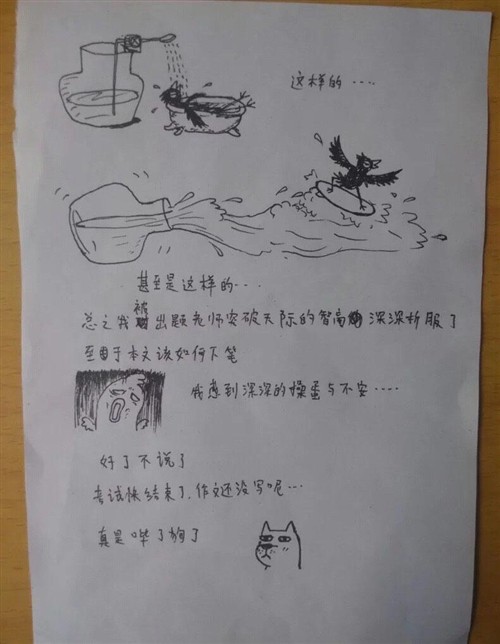 这样的····
甚至是这样的····
总之我被出题老师突破天际的智商深深折服了
至于本文该如何下笔
我感到深深的操蛋与不安····
好了不说了
考试快结束了,作文还没写呢···
真是哔了狗了